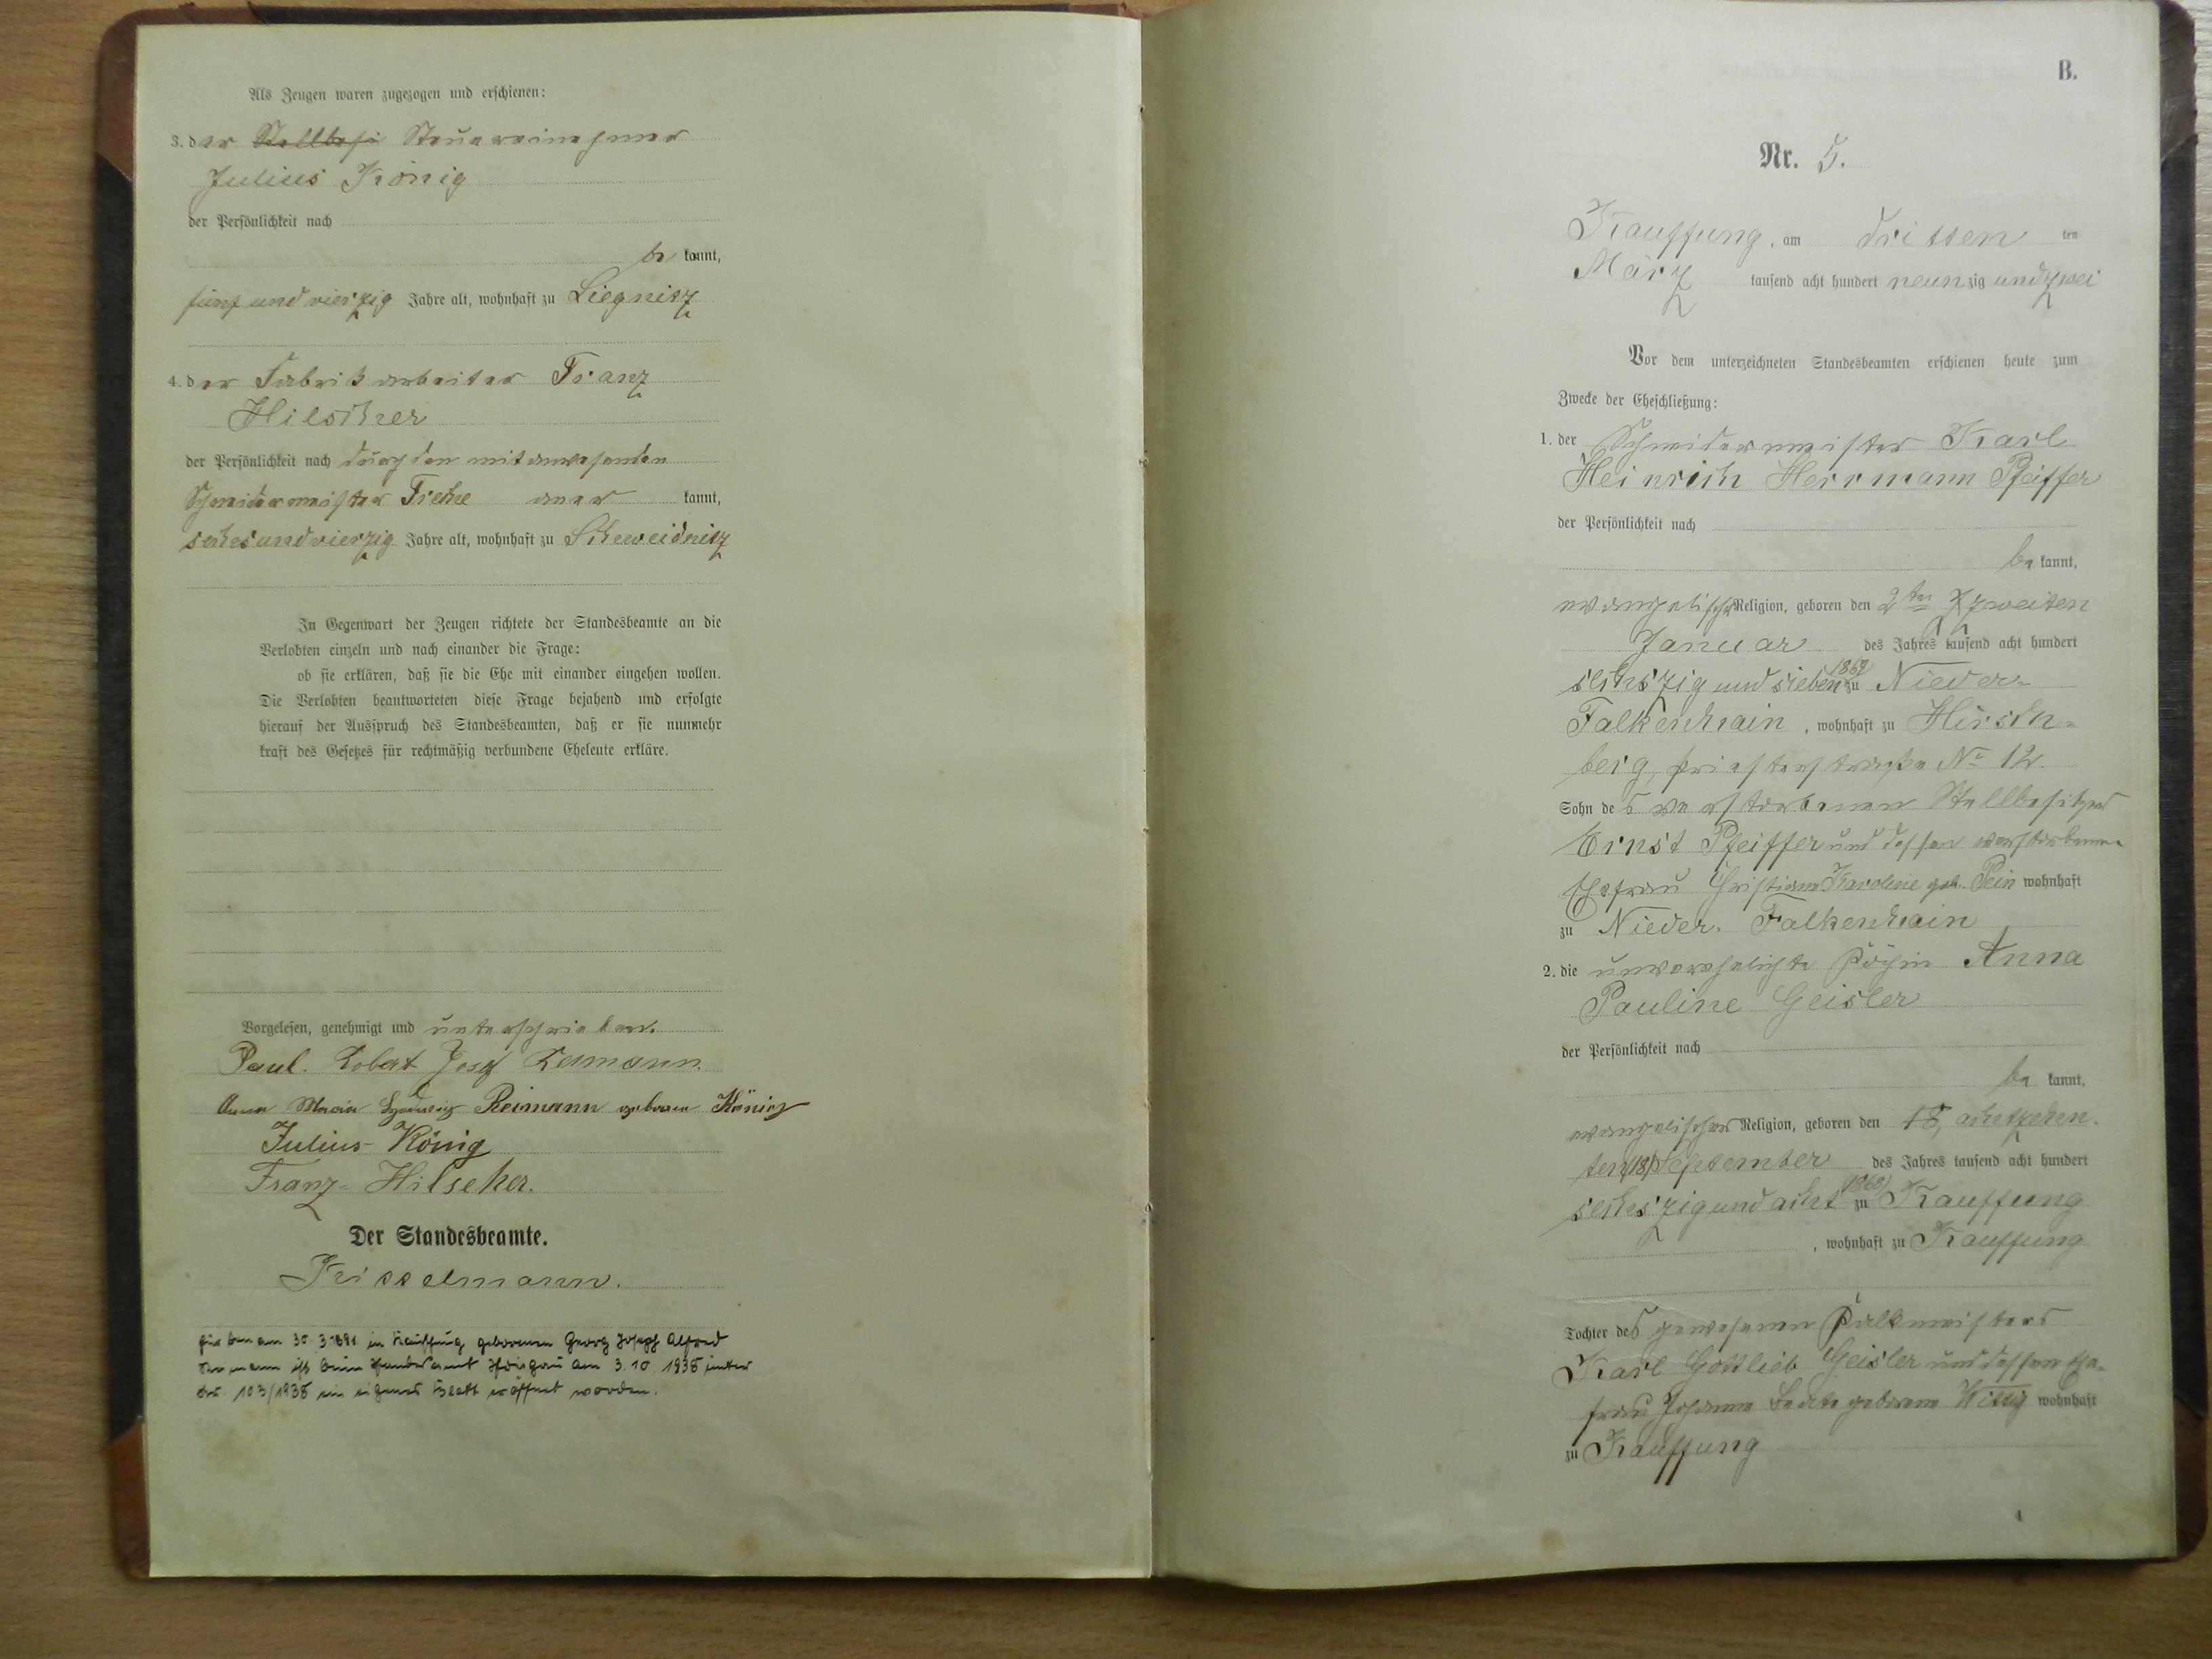 Als Zeugen waren zugezogen und erschienen:
3. der Stellbesi Steuereinnehmer
Julius König
der Persönlichkeit nach
be kannt,
fünf und vierzig Jahre alt, wohnhaft zu Liegnitz
4. der Fabrikarbeiter Franz
Hilscher
der Persönlichkeit nach durch den mitanwesenden
Schneidermeister aner kannt,
sechsundvierzig Jahre alt, wohnhaft zu Schweidnitz
In Gegenwart der Zeugen richtete der Standesbeamte an die
Verlobten einzeln und nach einander die Frage:
ob sie erklären, daß sie die Ehe mit einander eingehen wollen.
Die Verlobten beantworteten diese Frage bejahend und erfolgte
hierauf der Ausspruch des Standesbeamten, daß er sie nunmehr
kraft des Gesetzes für rechtmäßig verbundene Eheleute erkläre.
Vorgelesen, genehmigt und unterschrieben.
Paul. Robert Josef Reimann.
Anna Maria Hedwig Reimann geborene König
Julius König
Franz Hilscher.
Der Standesbeamte.
Kisselmann.
Für den am 30.3.1891 in Kauffung geborenen Georg Joseph Alfred
Reimann ist beim Standesamt am 3.10.1938 unter
Nr. 103/1938 ein eigenes Blatt eröffnet worden.
B.
Nr. 5.
Kauffung, am dritten ten
März tausend acht hundert neunzig und zwei
Vor dem unterzeichneten Standesbeamten erschienen heute zum
Zwecke der Eheschließung:
1. der Schneidermeister Karl
Heinrich Herrmann Pfeiffer
der Persönlichkeit nach
be kannt,
evangelischer Religion, geboren den 2ten zweiten
Januar des Jahres tausend acht hundert
sechszig und sieben 1867 zu Nieder-
Falkenhain, wohnhaft zu Hirsch-
berg, Priesterstraße No 12.
Sohn des verstorbenen Stellbesitzers
Ernst Pfeiffer und dessen verstorbenen
Ehefrau Christiane Karoline geb. Pein wohnhaft
zu Nieder. Falkenhain
2. die unverehelichte Köchin Anna
Pauline Geisler
der Persönlichkeit nach
be kannt,
evangelischer Religion, geboren den 18, achtzehn-
ten (18) September des Jahres tausend acht hundert
sechszig und acht (1868) zu Kauffung
, wohnhaft zu Kauffung
Tochter des gewesenen Kalkmeisters
Karl Gottlieb Geisler und dessen Ehe-
frau Johanne Beate geborene Wittig wohnhaft
zu Kauffung
4